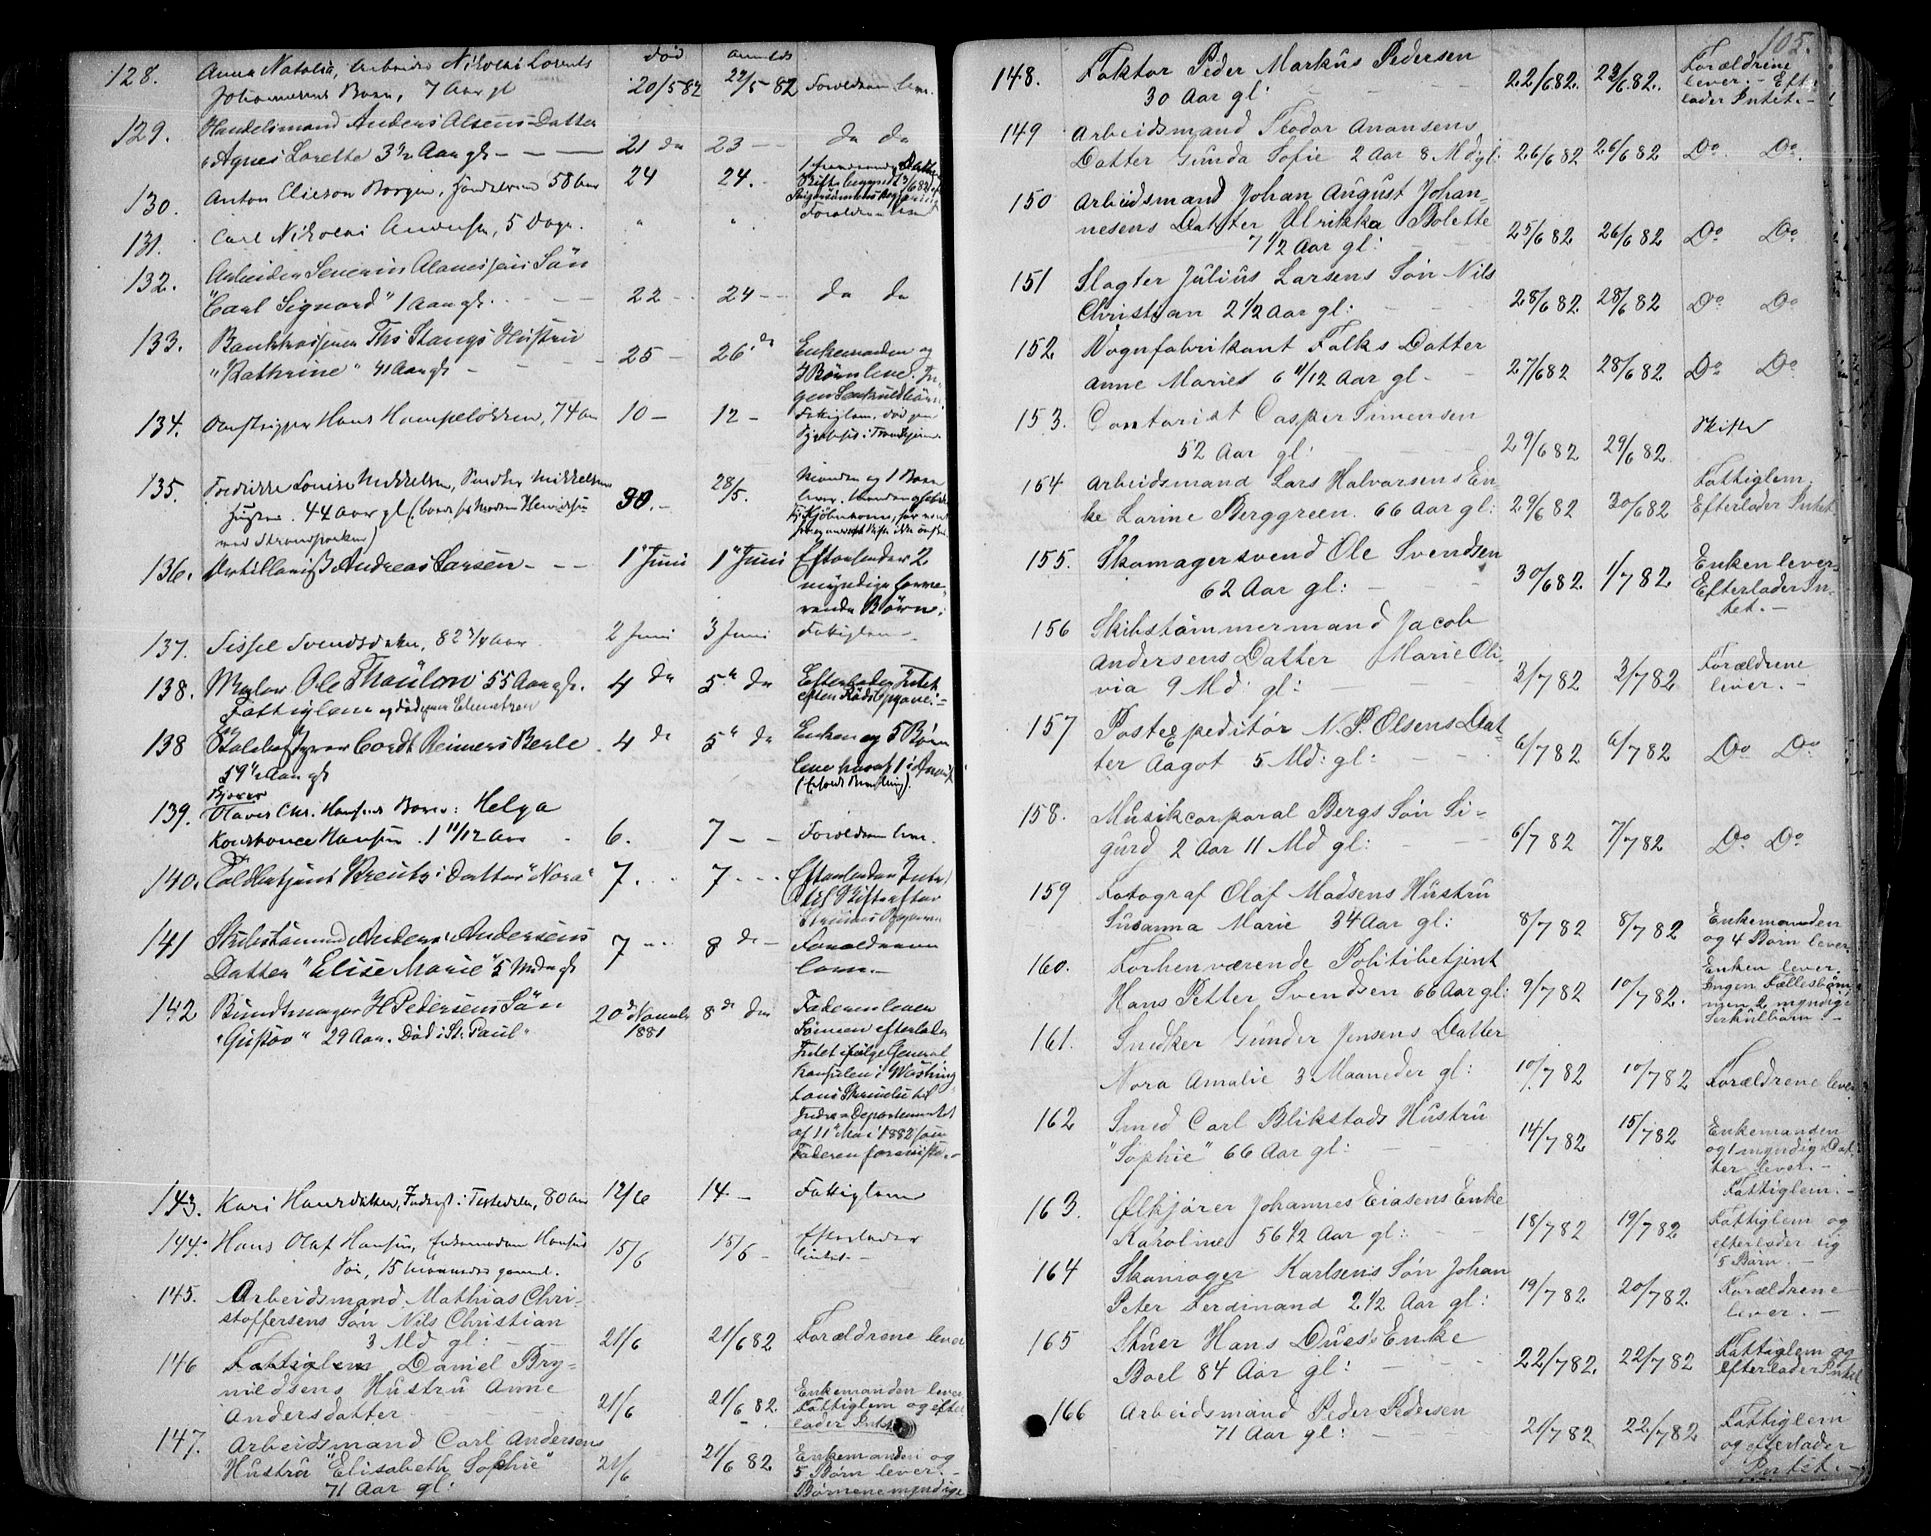 død anmeldt
128. Anna Natalia, Arbeider Nikolai Lorents
Johannesens Barn, 7 Aar gl 20/5 82 22/5 82 Forældrene lever.
129. Handelsmand Anders Olsens Datter
"Agnes Lorette 3 1/2 Aar gl - — — 21 da 23 - - da da
130. Anton Eliesen Borgen, 58 Aar 24 24. -
131. Carl Nikolai Andersen, 5 Dage. " " Forældrene lever
132. Arbeider Severin Søn
"Carl Sigvard" 1 Aar gl. 22 - 24 - - da da
133. Bankkasserer Ths Stangs Hustru
"Kathrine" 41 Aar gl - - 25 - 26 de Enkemanden og
7 Børn lever. In-
gen Særkuldbørn
134. Hans Hampeløkken, 74 Aar 10 - 12 - Fattiglem, død paa
Sygehus i Trondhjem
135. Fredrikke Louise Mikkelsen, Snedker Mikkelsens
Hustru. 44 Aar gl 30. - 28/5. Manden og 1 Barn
lever.
136. Artillerist Andreas Larsen - - - 1ste Juni 1ste Juni Efterlader 2
myndige
Børn.
137. Sissel Svendsdatter, 82 3/4 Aar 2 Juni 3 Juni Fattiglem -
138. Maler Ole Thaulow 55 Aar gl. 4 da 5te da Efterlader Intet
Fattiglem
138 Cordt Reimers Berle 4 de 5te da Enken og 5 Børn
59 1/2 Aar gl lever
139. Olaves Chr. Hansens Barn: Helga
Konstance Hansen. 1 11/12 Aar 6. 7 - - Forældrene lever.
140. Toldbetjent Kreutz' Datter "Nora" 7. . . 7 - - - Efterlader Intet
141 Skibstømmd Anders Andersens
Datter "Elise Marie" 5 Mdr gl 7 - - 8 de - Forældrene
lever. -
142 Bundtmager H Pedersens Søn
"Gustav" 29 Aar. Død i St. Paul" 20de Novembr 1881 8 de da Faderen lever
Sønnen efterlader
Intet ifølge General
konsulen i Washing
tons Skrivelse til
Indre-Departementet
af 11te Mai 1882 som
Faderen foreviste. -
143. Kari Hansdatter, 80 Aar 12/6 14 - Fattiglem
144. Hans Olaf Hansen, Hansens
Søn, 15 Maaneder gammel. 15/6 15/6 - Efterlader
Intet -
145. Arbeidsmand Mathias Chri-
stoffersens Søn Nils Christian
3 Md gl: — 21/6 21/6 82 Forældrene lever
146 Fattiglem Daniel Bry-
nildsens Hustru Anne
Andersdatter. 21/6 21/6 82. Enkemanden lever
Fattiglem og efter
lader Intet
147. Arbeidsmand Carl Andersens
Hustru "Elisabeth Sophie"
71 Aar gl: 21/6 21/6 82 Enkemanden og
5 Børn lever. -
Børnene myndige
105.
148. Faktor Peder Markus Pedersen
30 Aar gl: - - - 22/6 82. 22/6 82. Forældrene
lever. - Efter
lader Intet. -
149 Arbeidsmand Teodor Anonsens
Datter Gunda Sofie 2 Aar 8 Md gl: 26/6 82 26/6 82 Do. Do.
150 Arbeidsmand Johan August Johan-
nesens Datter Ulrikka Bolette
7 1/2 Aar gl: - - 25/6 82 26/6 82 Do Do
151 Slagter Julius Larsens Søn Nils
Christian 2 1/2 Aar gl: - - 28/6 82. 28/6 82 Do Do
152 Vognfabrikant Falks Datter
Anne Marie 6 11/12 Aar gl - - 27/6 82 28/6 82 Do Do
153. Contorist Casper Simensen
52 Aar gl: - - - 29/6 82 29/6 82 Skifte
154 Arbeidsmand Lars Halvorsens En-
ke Larine Berggreen. 66 Aar gl: 29/6 82 30/6 82 Fattiglem.
Efterlader Intet
155. Skomagersvend Ole Svendsen
62 Aar gl: - - 30/6 82. 1/7 82 Enken lever.
Efterlader In-
tet. -
156 Skibstømmermand Jacob
Andersens Datter Marie Oli-
via 9 Md: gl: - - 3/7 82 3/7 82 Forældrene
lever. -
157 Postexpeditør N. P. Olsens Dat-
ter Aagot 5 Md: gl: - - 6/7 82 6/7 82 Do Do
158. Musikcorporal Bergs Søn Si-
gurd 2 Aar 11 Md gl: - - 6/7 82 7/7 82 Do Do
159 Fotograf Olaf Madsens Hustru
Susanna Marie 34 Aar gl: 8/7 82 8/7 82 Enkemanden
og 4 Børn lever.
160. Forhenværende Politibetjent
Hans Petter Svendsen 66 Aar gl: 9/7 82 10/7 82. Enken lever.
Ingen Fællesbørn,
men 2 myndige
Særkulbørn. -
161. Snedker Gunder Jensens Datter
Nora Amalie 3 Maaneder gl: 10/7 82 10/7 82 Forældrene lever
162 Smed Carl Blikstads Hustru
"Sophie" 66 Aar gl: - 14/7 82 15/7 82 Enkemanden
og 1 myndig Dat-
ter lever. -
Fattiglem. -
163. Ølkjører Johannes Eiasens Enke
Karoline 56 1/2 Aar gl: - - 18/7 82 19/7 82 Fattiglem og
efterlader sig
5 Børn. -
164 Skomager Karlsens Søn Johan
Peter Ferdinand 2 1/2 Aar gl: 19/7 82 20/7 82. Forældrene
lever. -
165 Stuer Hans Dues's Enke
Boel 84 Aar gl: - - - 22/7 82. 22/7 82 Fattiglem og
efterlader Intet
166 Arbeidsmand Peder Pedersen
71 Aar gl: - - 21/7 82 22/7 82 Fattiglem
og efterlader
Intet. -